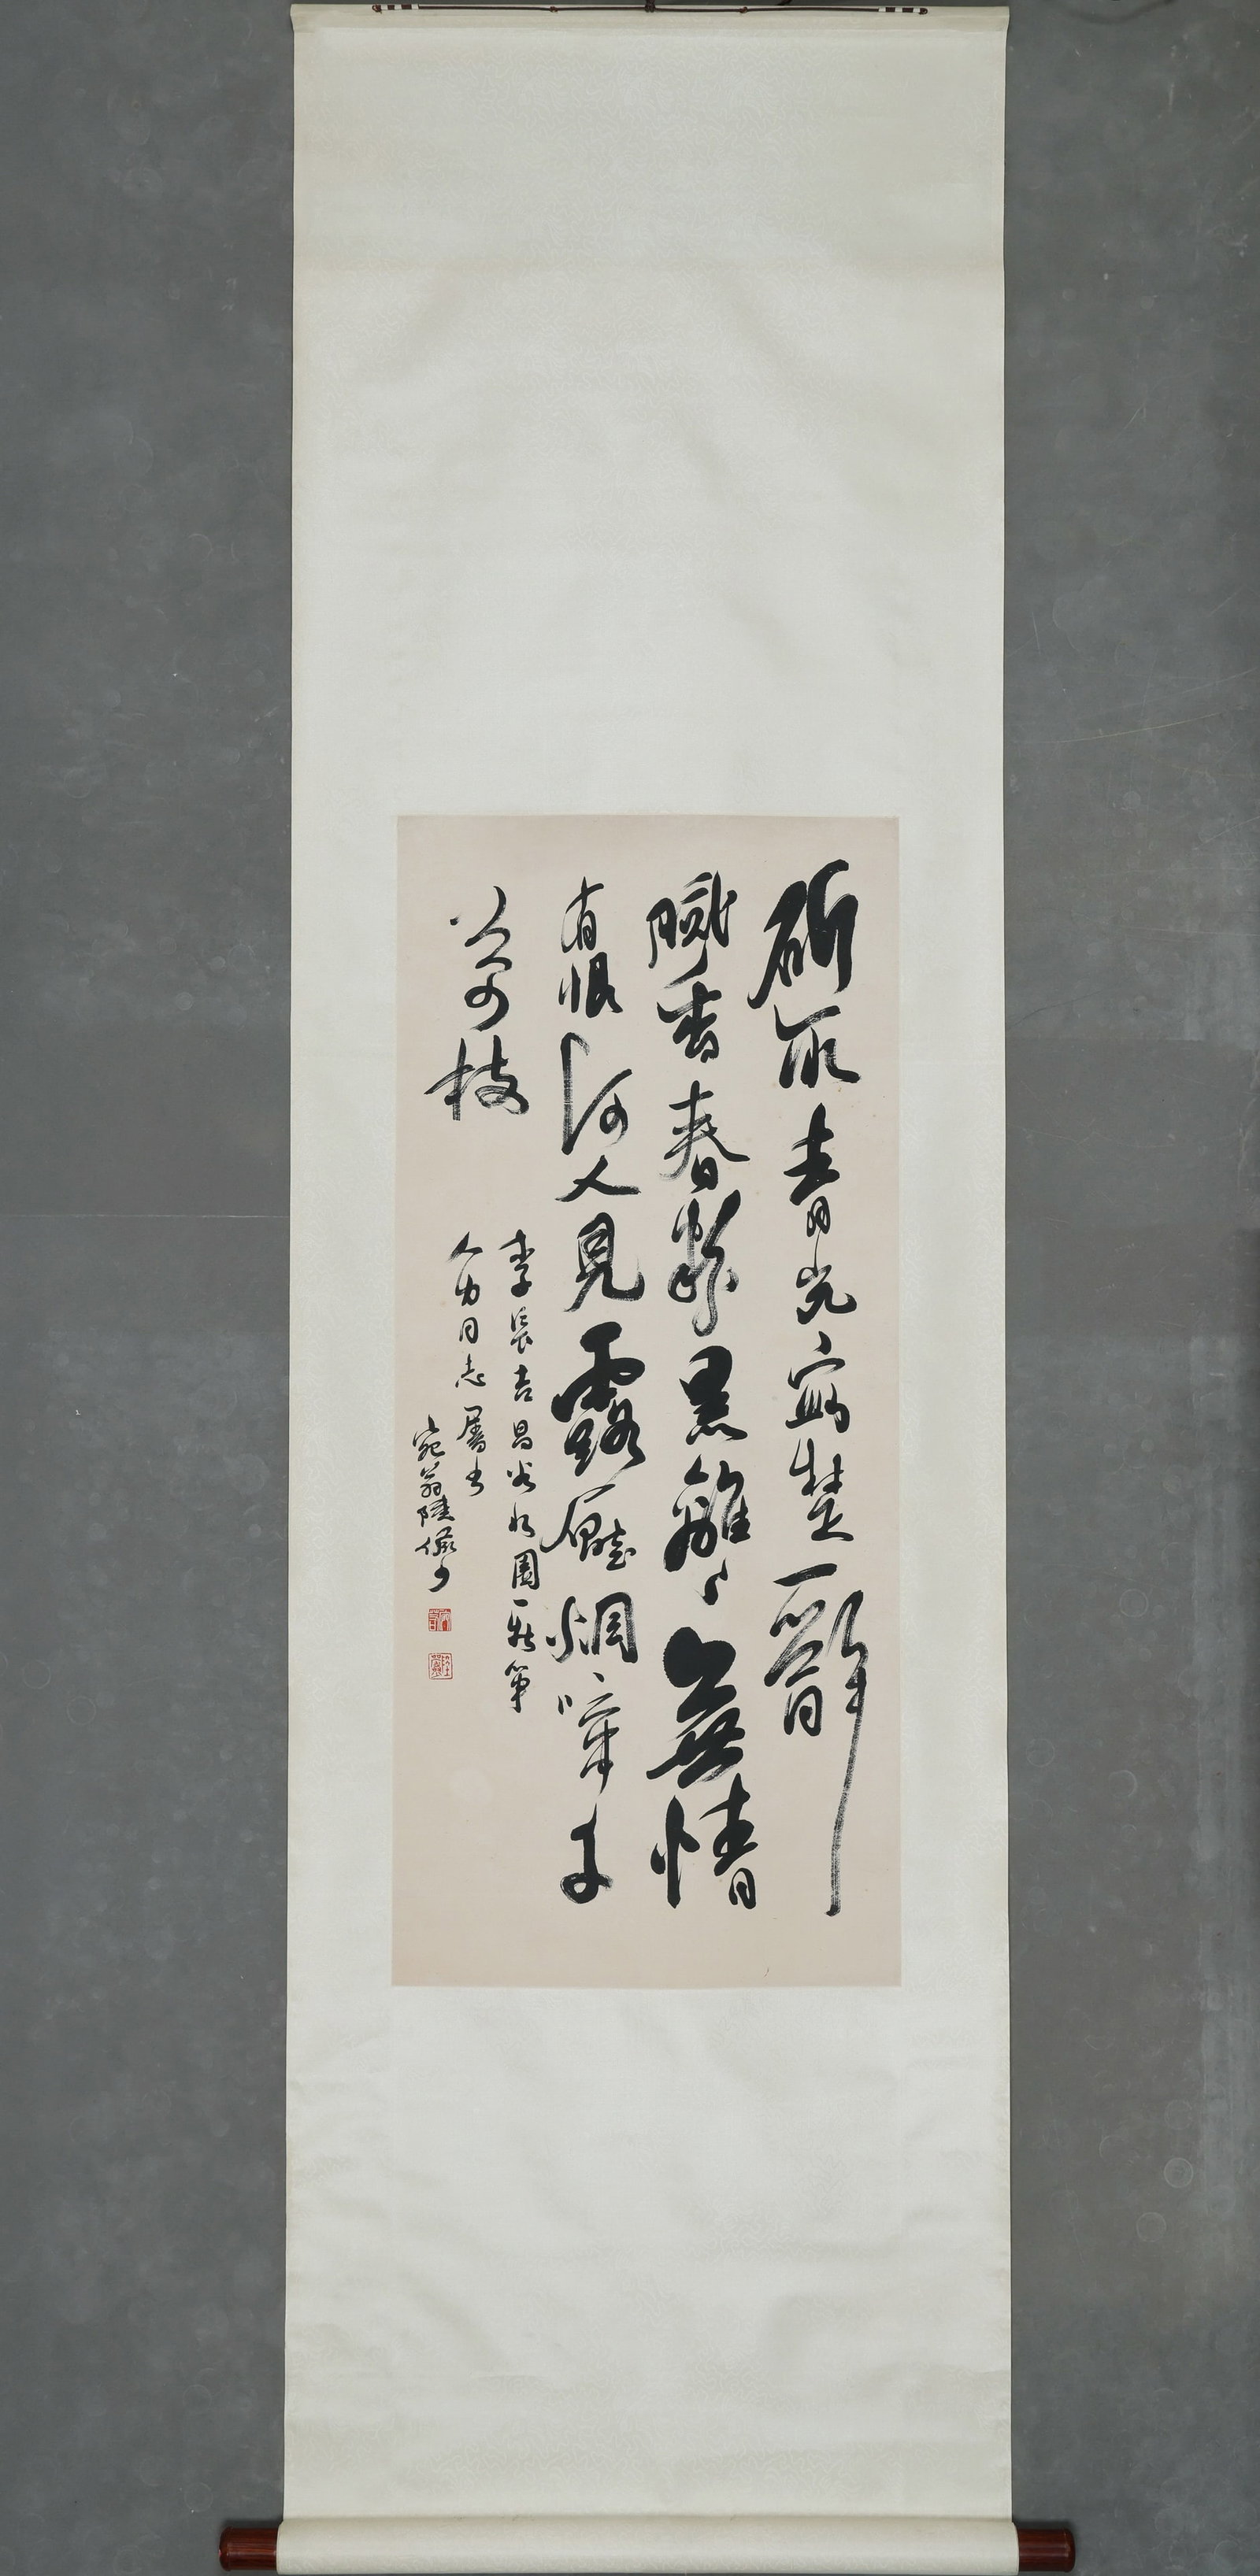 斫取青光寫楚辭
膩香春粉黑離〻無情
有恨何人見露壓烟啼千
萬枝
李長吉昌谷北園新筍
同志屬書
宛翁陸儼少